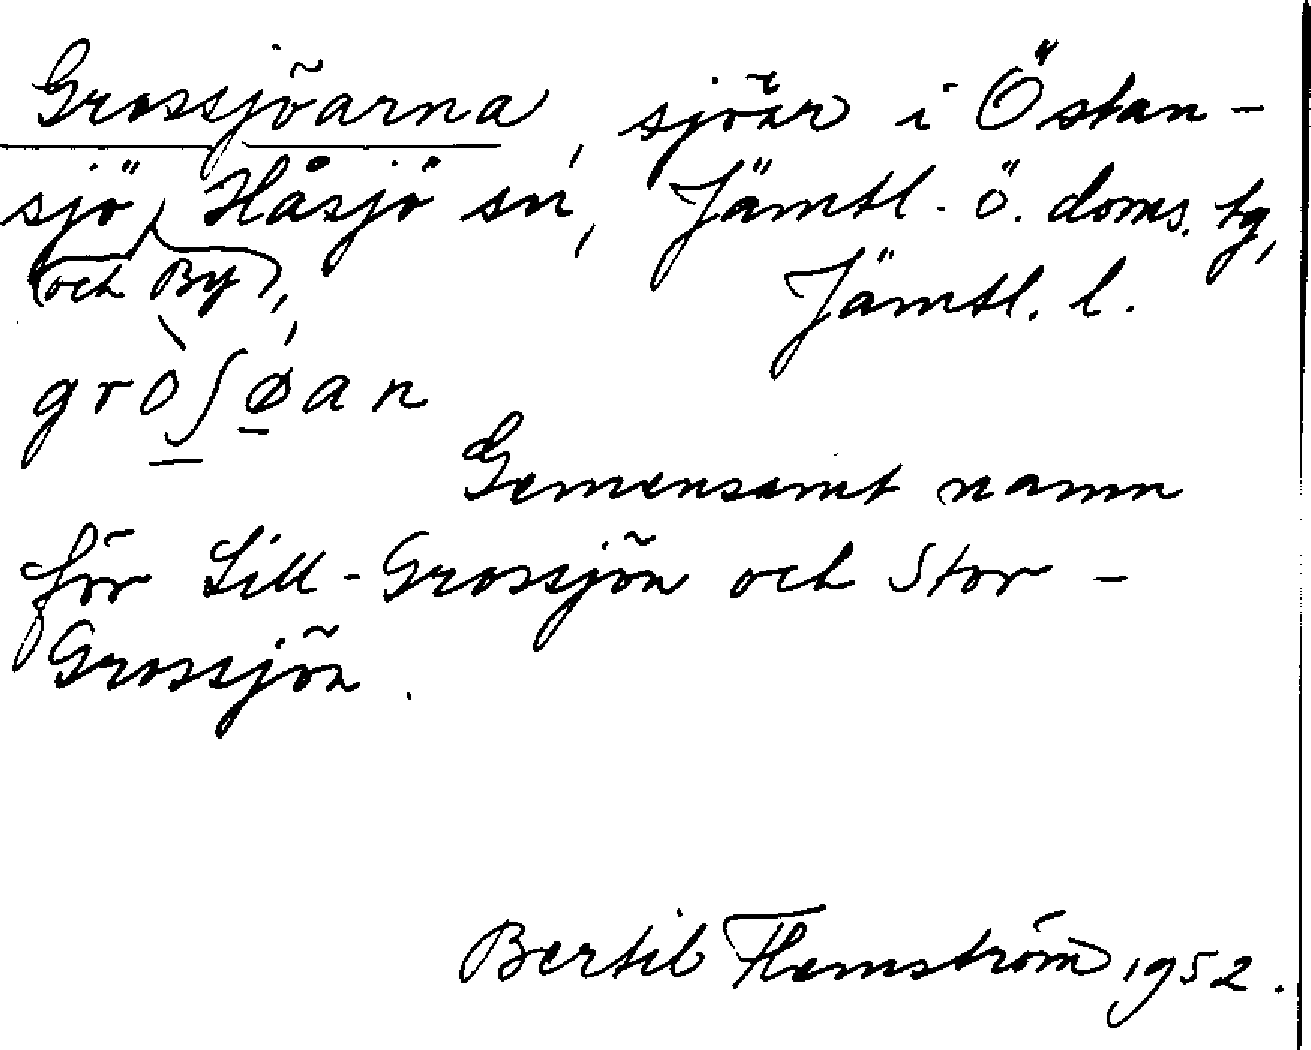 Grossjöarna, sjöar i Östan-
sjö, Håsjö sn, Jämtl. ö. doms. tg,
(och By),
Jämtl. l.
gròʃøan
Gemensamt namn
för Lill-Grossjön och Stor-
Grossjön.
Bertil Flemström 1952.